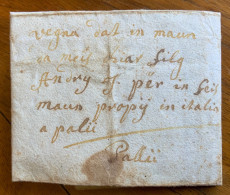 vegna dat in maun
a meis char filg
Andry per in seis
maun propij in italia
a palü
Palü